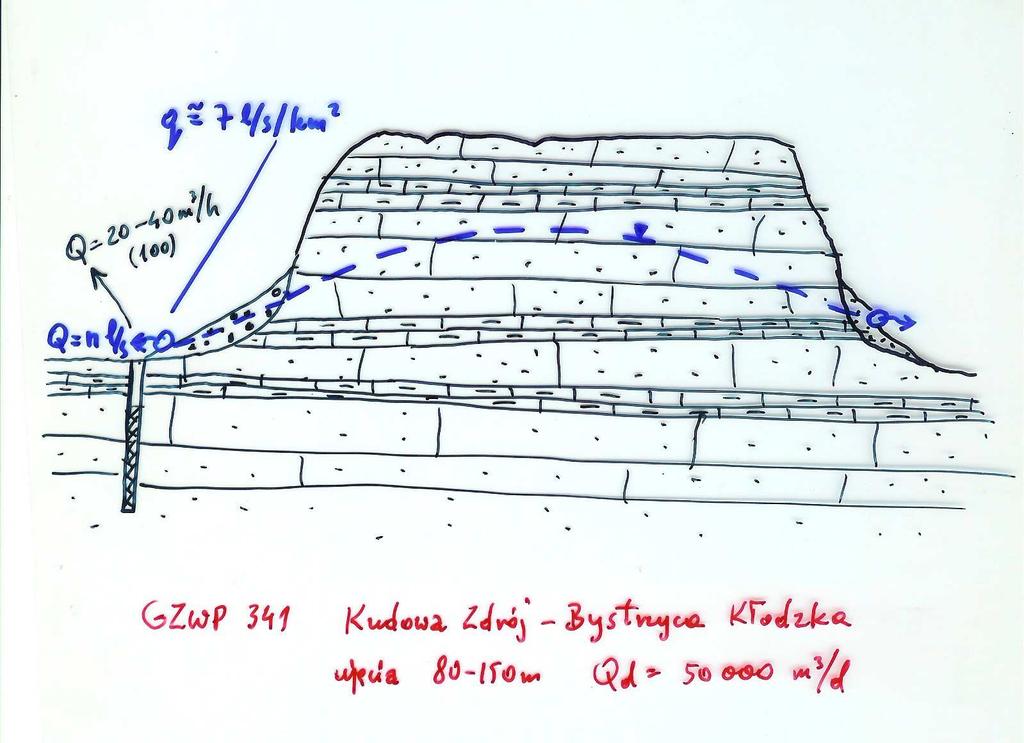 q ≅ 7 l/s/km²
Q = 20-40 m³/h
(100)
Q = n l/s
GZWP 341 Kudowa Zdrój - Bystrzyca Kłodzka
ujęcia 80-150m Qd = 50 000 m³/d